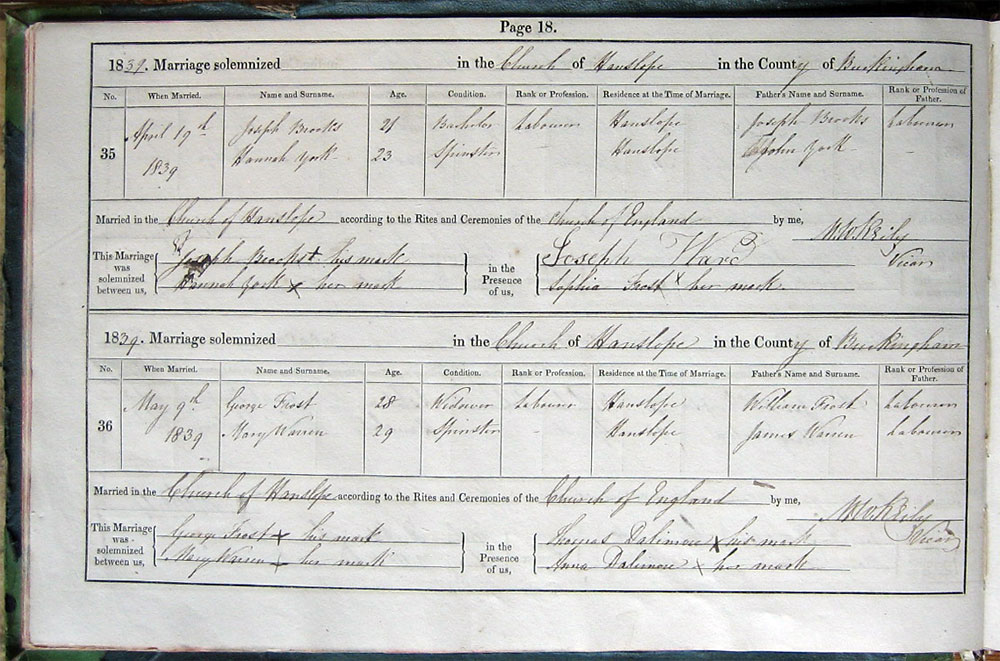 Page 18.
1839. Marriage solemnized in the Church of Hanslope in the County of Buckingham
No. When Married. Name and Surname. Age. Condition. Rank or Profession. Residence at the Time of Marriage. Father's Name and Surname. Rank or Profession of Father.
35 April 19th 1839 Joseph Brooks 21 Bachelor Labourer Hanslope Joseph Brooks Labourer
Hannah York 23 Spinster - Hanslope John York -
Married in the Church of Hanslope according to the Rites and Ceremonies of the Church of England by me, Vicar
This Marriage was solemnized between us, Joseph Brooks + his mark in the Presence of us, Joseph Ward
Hannah York x her mark Sophia Frost x her mark.
1839. Marriage solemnized in the Church of Hanslope in the County of Buckingham
No. When Married. Name and Surname. Age. Condition. Rank or Profession. Residence at the Time of Marriage. Father's Name and Surname. Rank or Profession of Father.
36 May 9th 1839 George Frost 28 Widower Labourer Hanslope William Frost Labourer
Mary Warren 29 Spinster - Hanslope James Warren Labourer
Married in the Church of Hanslope according to the Rites and Ceremonies of the Church of England by me, Vicar
This Marriage was solemnized between us, George Frost + his mark in the Presence of us, Thomas Dalimore x his mark
Mary Warren + her mark Anna Dalimore x her mark